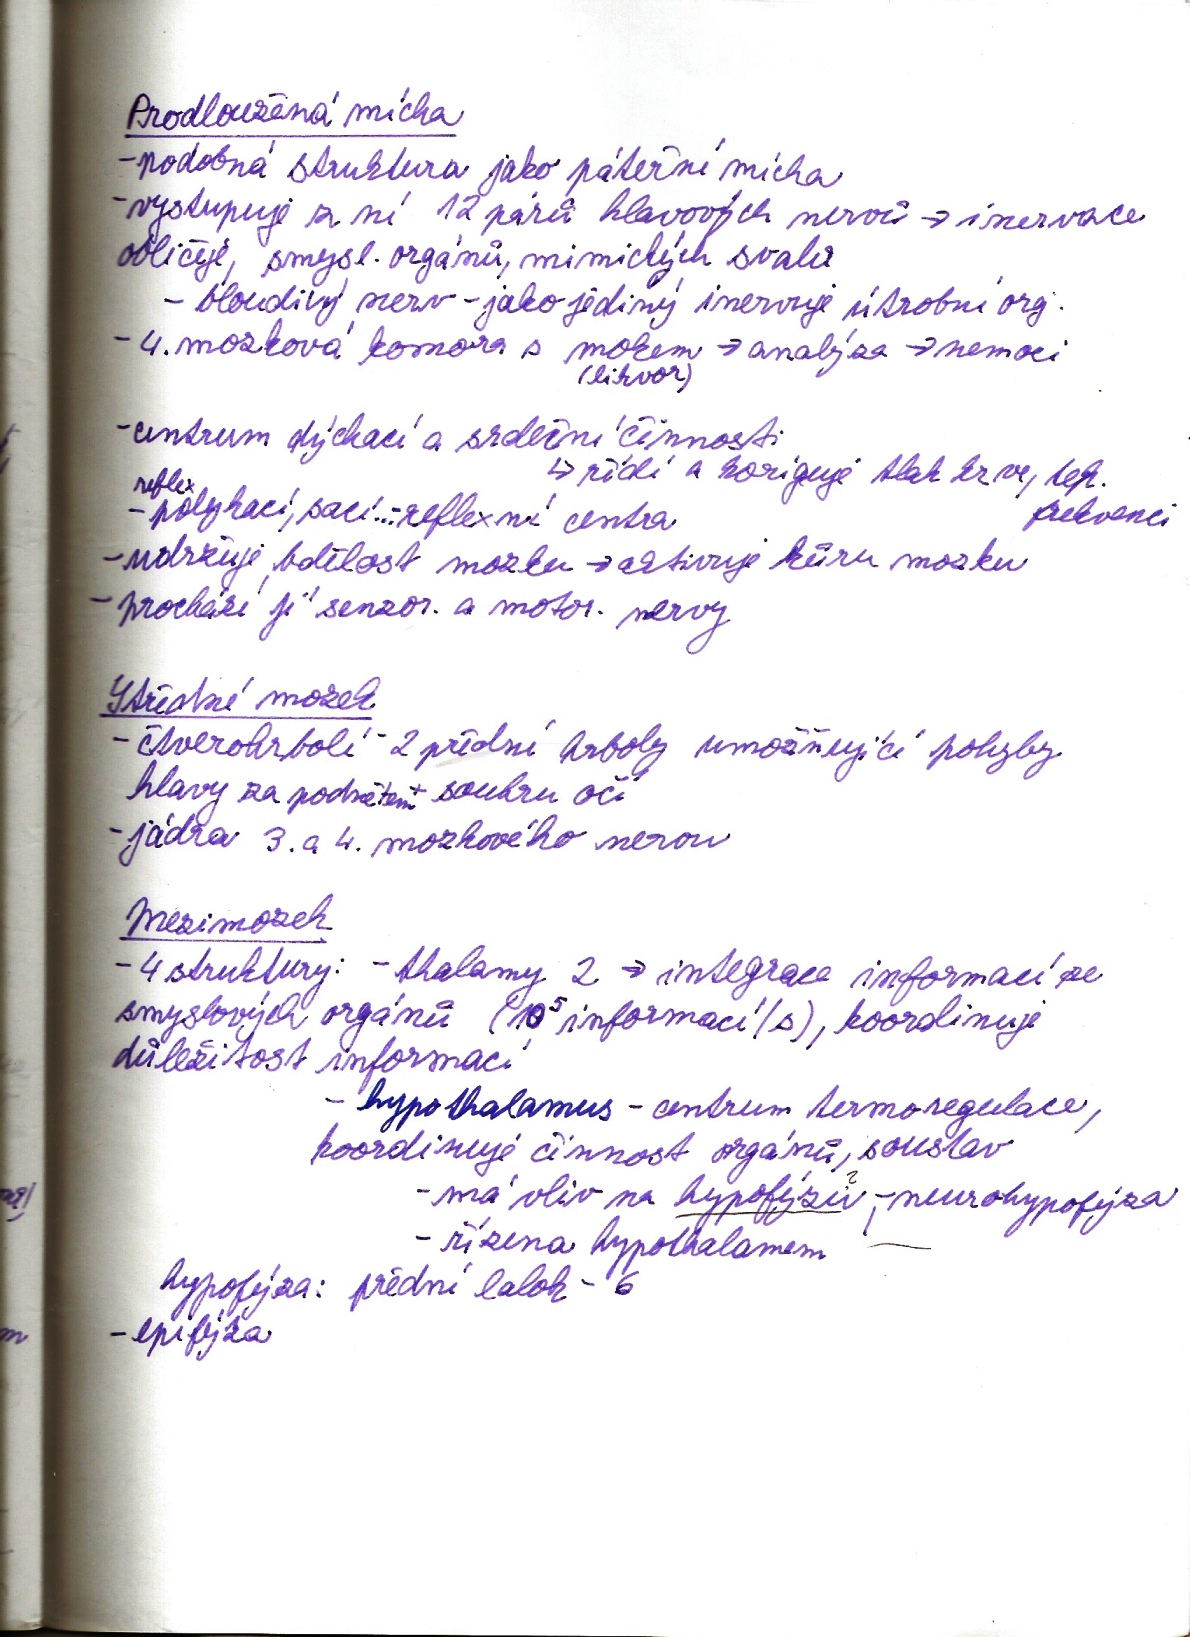 Prodloužená mícha
- podobná struktura jako páteřní mícha
- vystupuje z ní 12 párů hlavových nervů → inervace
obličeje, smysl. orgánů, mimických svalů
- bloudivý nerv - jako jediný inervuje útrobní org.
- 4. mozková komora s mokem → analýza → nemoci
(likvor)
- centrum dýchací a srdeční činnosti
↳ řídí a koriguje tlak krve, tep.
frekvenci
reflex
- polykací, sací... - reflexní centra
- udržuje bdělost mozku → aktivuje kůru mozku
- prochází jí senzor. a motor. nervy
Střední mozek
- čtverohrbolí - 2 přední hrboly umožňující pohyby
hlavy za podnětem + souhru očí
- jádra 3. a 4. mozkového nervu
Mezimozek
- 4 struktury: - thalamy 2 → integrace informací ze
smyslových orgánů (10⁵ informací/s), koordinuje
důležitost informací
- hypothalamus - centrum termoregulace,
koordinuje činnost orgánů, soustav
- má vliv na hypofýzu ? - neurohypofýza
- řízena hypothalamem
hypofýza: přední lalok - 6
- epifýza